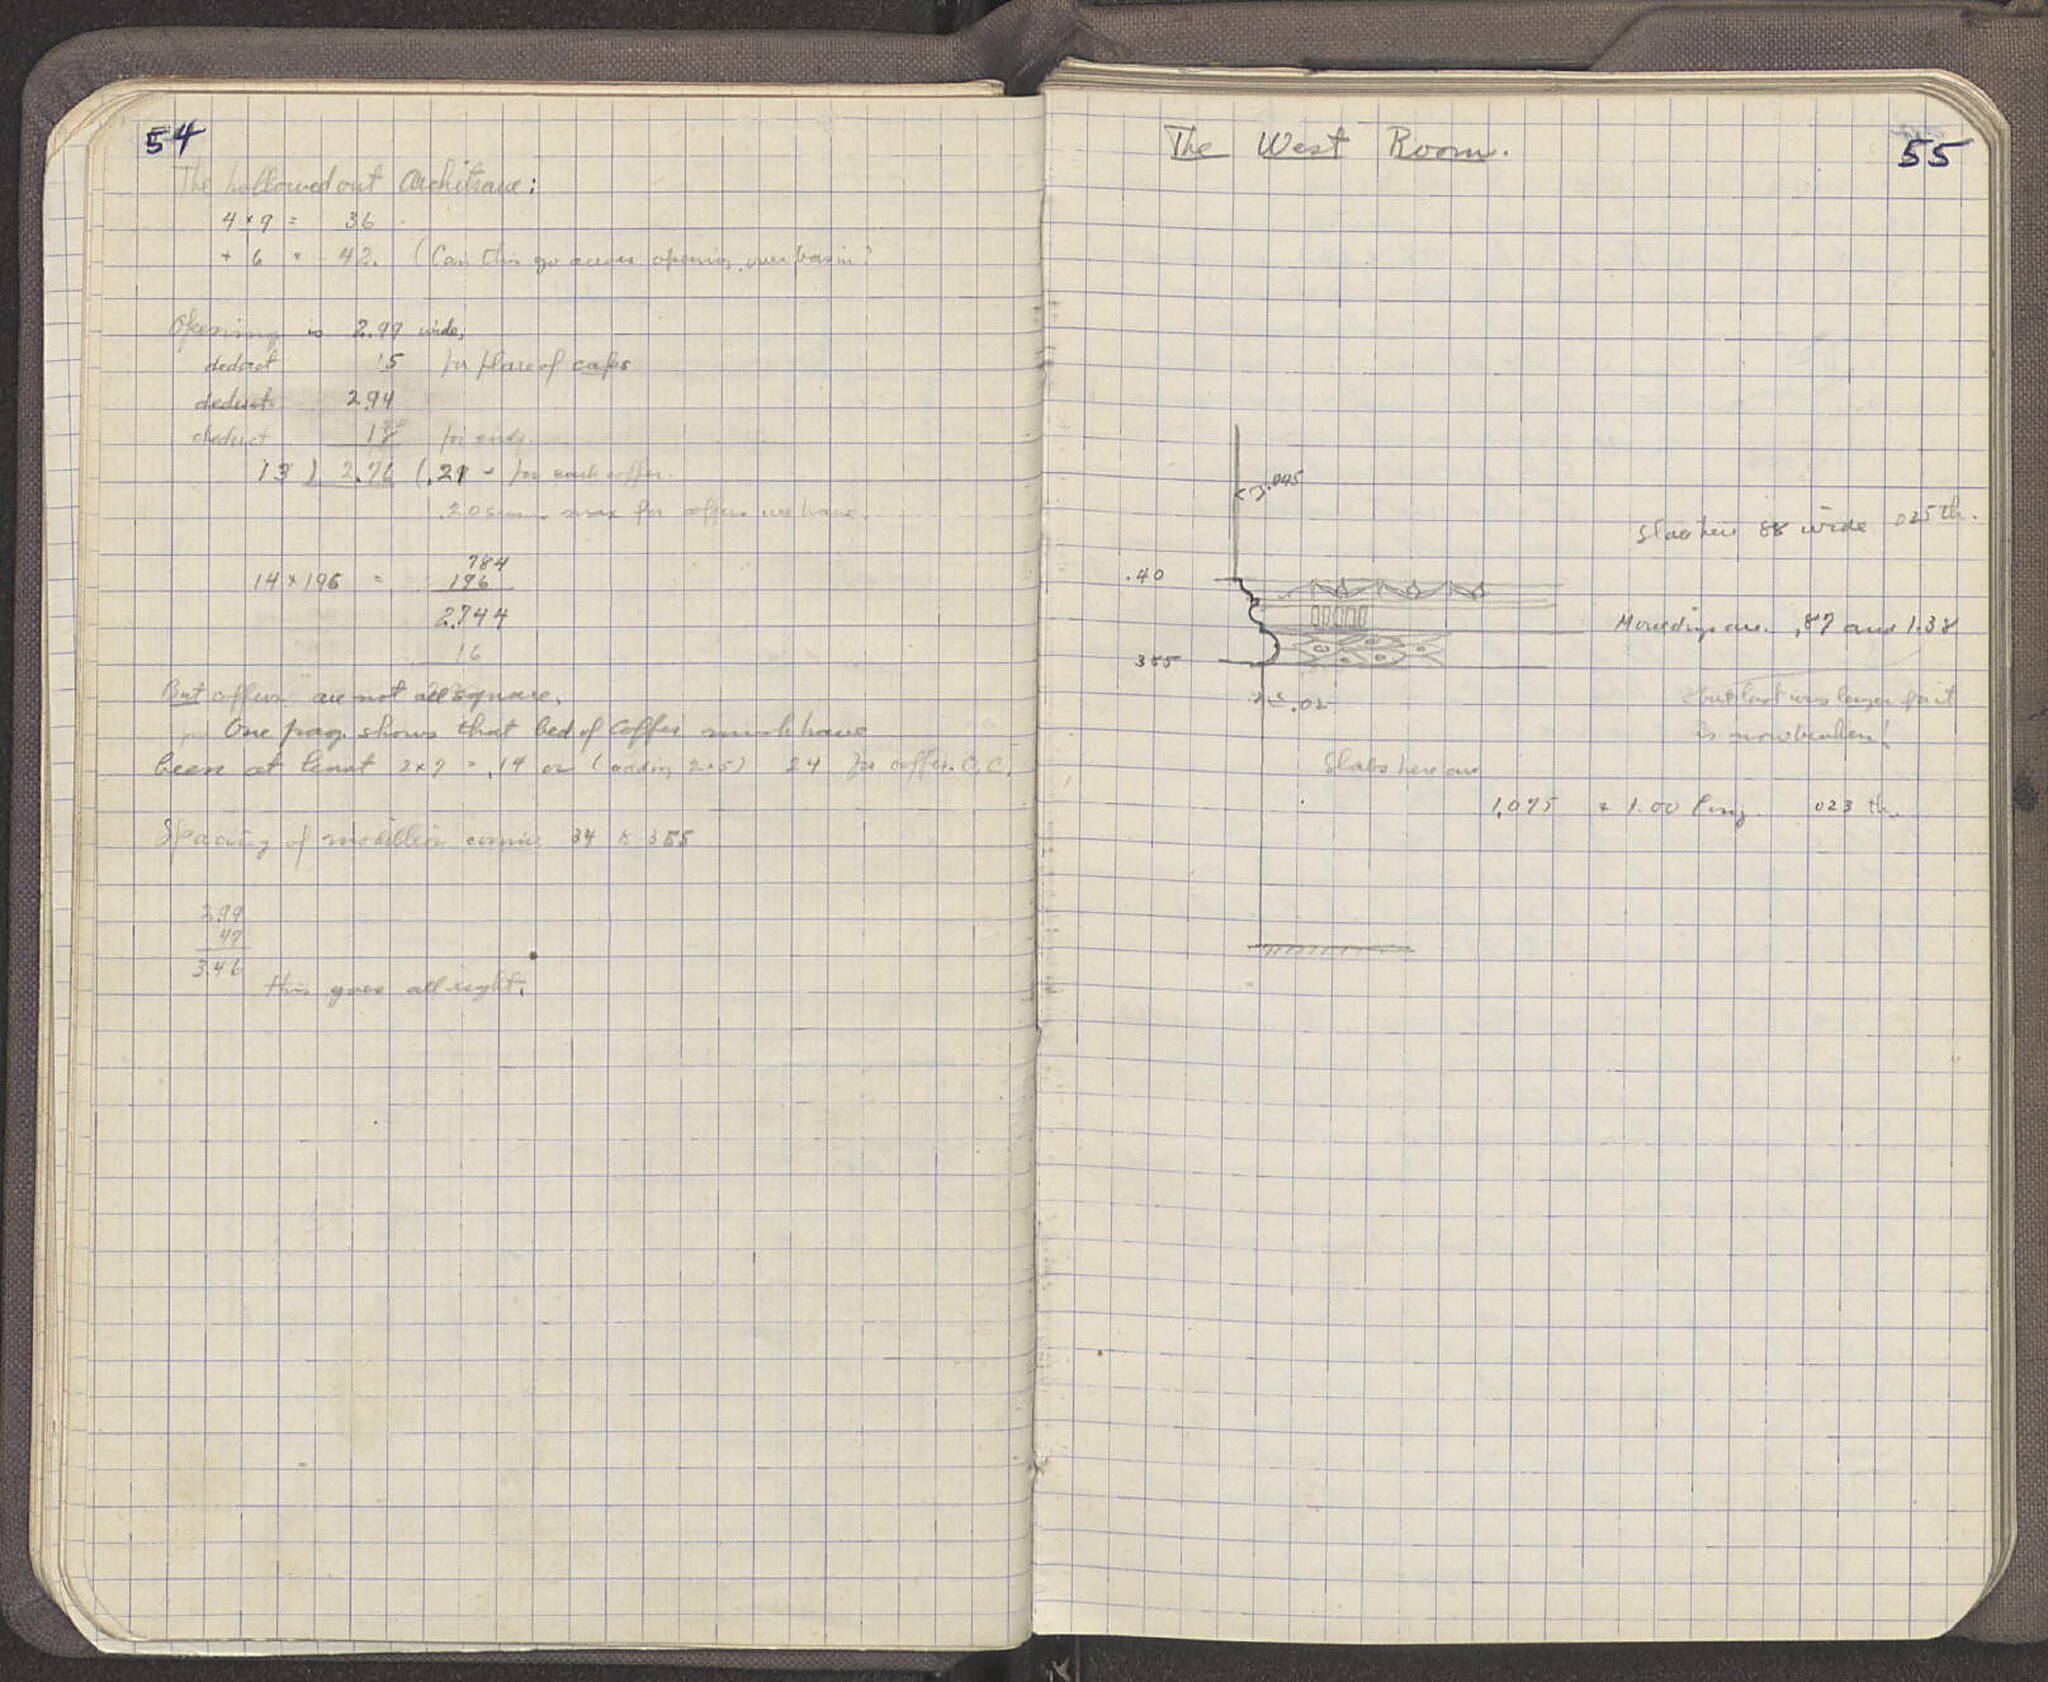 54
The hollowed out Architrave:
4 × 9 = 36
+ 6 = 42. (Can this go across opening over basin?
Opening is 2.99 wide;
deduct 15 for place of caps
deduct 2.94
deduct 18 for ends.
13 ) 2.76 (.21 - for each coffer.
.20 max for coffers we have.
784
14 × 196 = 196
2.744
16
But coffers are not all square.
One frag. shows that bed of coffer must have
been at least 2×7 = .14 or (adding 2×5) 24 for coffer. C.C.
Spacing of modillion cornice 34 to 355
2.99
47
3.46
this goes all right.
The West Room.
55
.045
Slab here 88 wide 025 th.
.40
Mouldings are .87 and 1.38
355
but last was larger for it
is now broken!
.02
Slabs here are
1.075 & 1.00 long. 023 th.